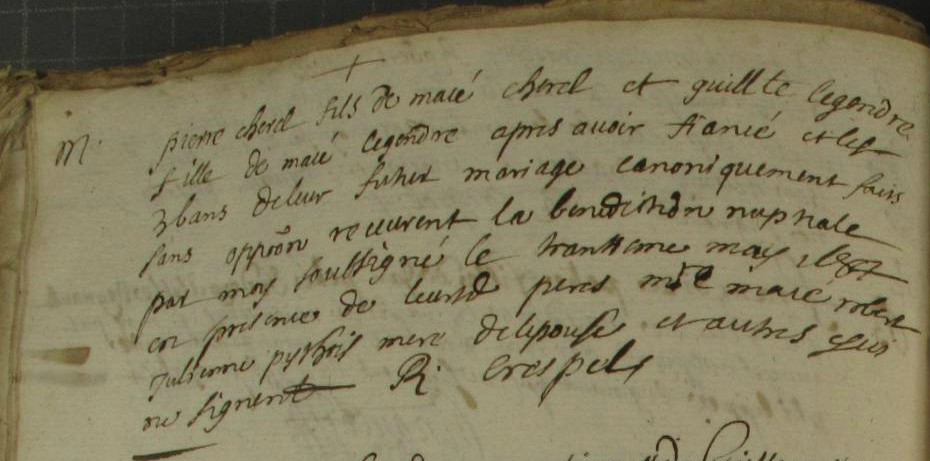 +
M. pierre cherel fils de macé cherel et guill^te legendre
fille de macé legendre apres avoir fiancé et les
3 bans de leur futur mariage canoniquement faits
sans oppõn receurent la benediction nuptiale
par moy soussigné le trantieme may
en presence de leursd peres macé robert
Julienne pythois mere de lepouse et autres qui
ne signent R. Crespel